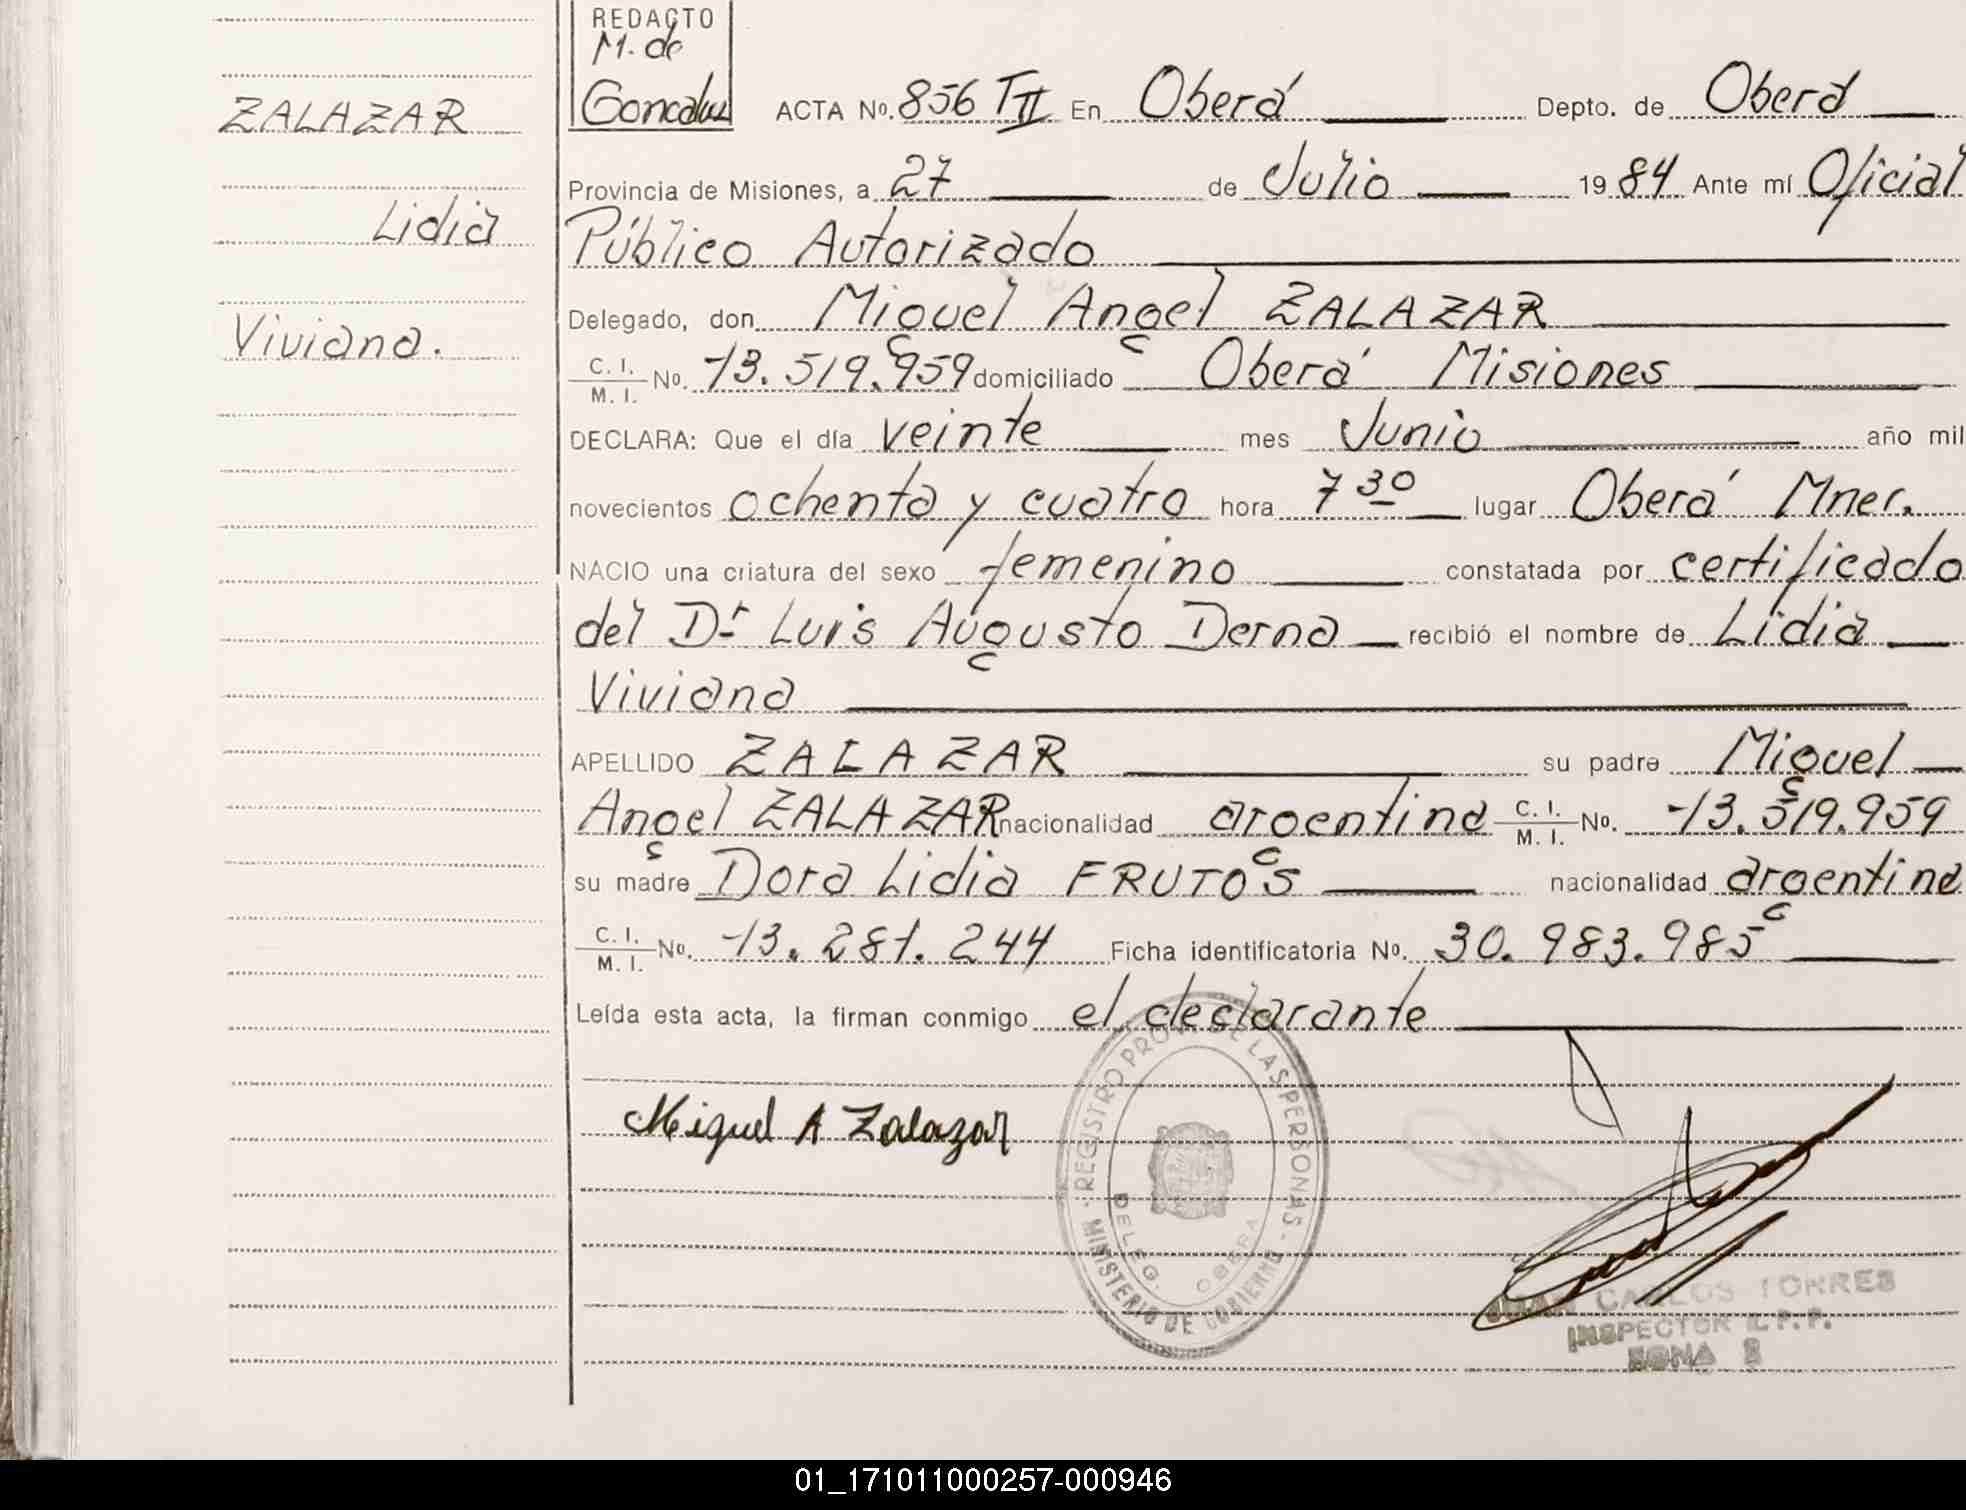 REDACTO
M. de
Goncalvez
ZALAZAR
Lidia
Viviana.
ACTA No. 856 TII En Oberá Depto. de Oberá
Provincia de Misiones, a 27 de Julio 1984 Ante mí Oficial
Público Autorizado
Delegado, don Miguel Angel ZALAZAR
C. I. / M. I. No. 13.519.959 domiciliado Oberá Misiones
DECLARA: Que el día veinte mes Junio año mil
novecientos ochenta y cuatro hora 7 30 lugar Oberá Mnes.
NACIO una criatura del sexo femenino constatada por certificado
del Dr. Luis Augusto Derna recibió el nombre de Lidia
Viviana
APELLIDO ZALAZAR su padre Miguel
Angel ZALAZAR nacionalidad argentina C. I. / M. I. No. 13.519.959
su madre Dora Lidia FRUTOS nacionalidad argentina
C. I. / M. I. No. 13.281.244 Ficha identificatoria No. 30.983.985
Leída esta acta, la firman conmigo el declarante
Miguel A Zalazar
REGISTRO PROV. DE LAS PERSONAS - MINISTERIO DE GOBIERNO
DELEG. OBERA
JUAN CARLOS TORRES
INSPECTOR R.P.P.
ZONA S
01_171011000257-000946